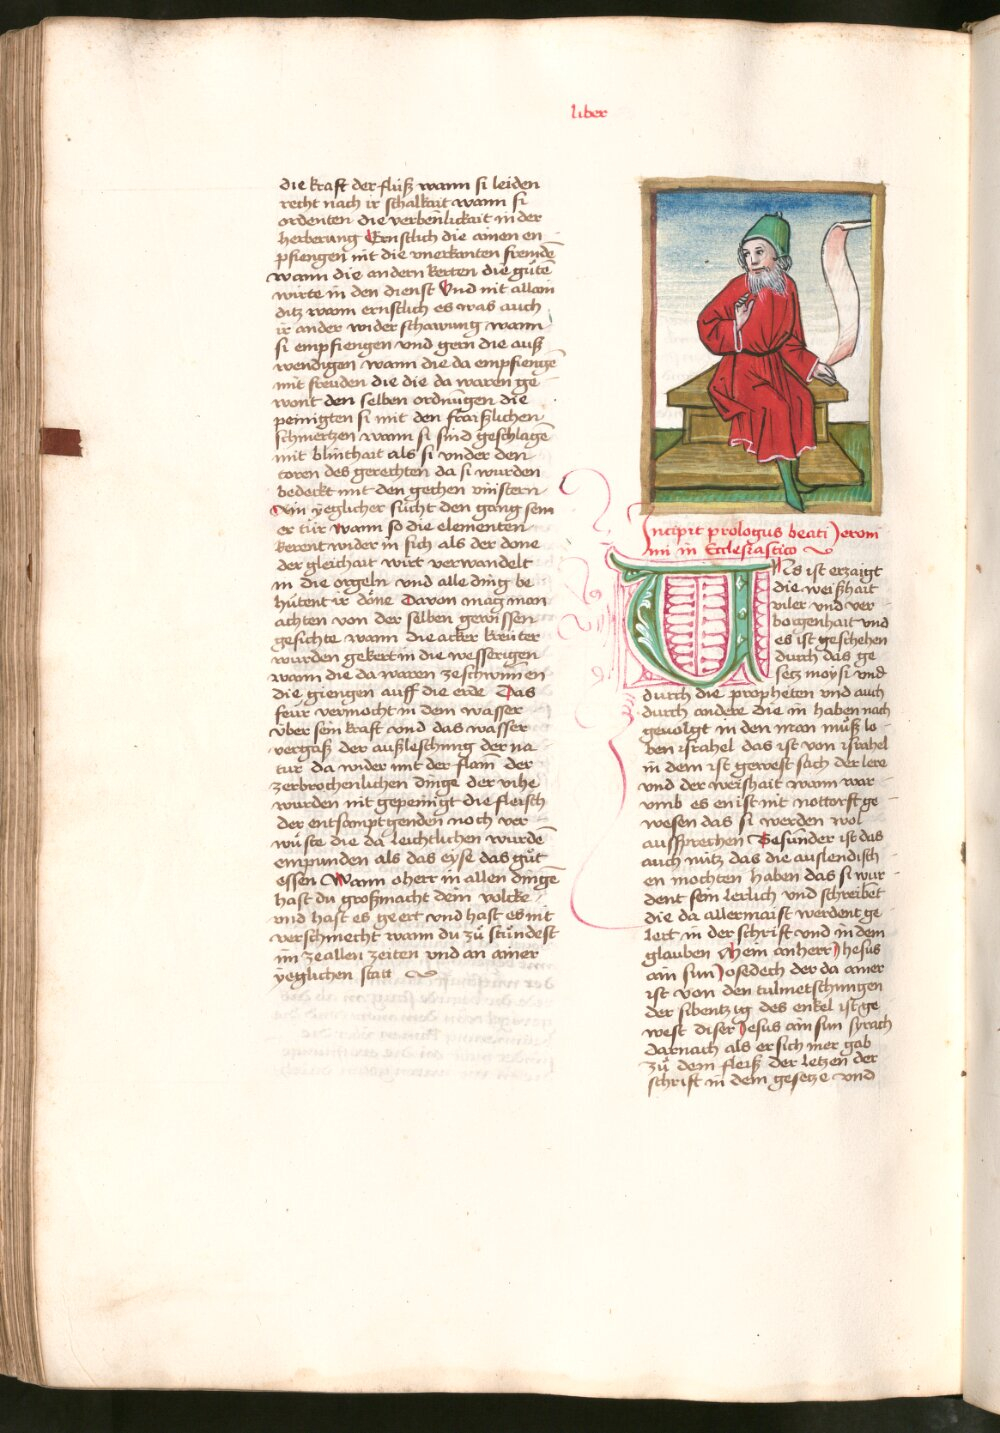 liber
die kraft der fluͤß wann si leiden
recht nach ir schalkait wann si
ordenten die verbenlickait in der
herberung Ernstlich die ainen en
pfiengen nit die vnerkanten fremdē
wann die andern kerten die gůtē
wirte in den dienst Vnd nit allain
ditz wann ernstlich es was auch
ir ander wider schawung wann
si empfiengen vnd gern die auß
wendigen wann die da empfiengē
mit freuden die die da waren ge
wont den selben ordnūgen die
peinigten si mit den
schmertzen wann si sind geschlagē
mit blinthait als si vnder den
toren des gerechten da si wurden
bedeckt mit den gechen vinstern
Ain yeglicher sucht den gang sein
er tür wann so die elementen
kerent wider in sich als der done
der gleichait wirt verwandelt
in die orgeln vnd alle ding be
hütent ir döne Davon mag man
achten von der selben gewissen
gesichte wann die acker kreüter
wurden gekert in die wesserigen
wann die da waren zeschwim̄en
die giengen auff die erde Das
feür vermocht in dem wasser
über sein kraft vnd das wasser
vergaß der außleschung der na
tur da wider mit der flam̄ der
zerbrochenlichen dinge der vihe
wurden nit gepeinigt die fleisch
der entsampt genden noch ver
wüste die da leichtlichen wurdē
empunden als das eyse das gůt
essen Wann o herr in allen dingē
hast du großmacht dein volcke
vnd hast es geert vnd hast es nit
verschmecht wann du zů stůndest
im ze allen zeiten vnd an ainer
yeglichen statt
Incipit prologus beati Jeroni
mi in Ecclesiastico
VNs ist erzaigt
die weißhait
viler vnd ver
borgenhait vnd
es ist geschehen
durch das ge
setz moysi vnd
durch die propheten vnd auch
durch andere die in haben nach
geuolgt in den man můß lo
ben israhel das ist von israhel
in dem ist gewest sach der lere
vnd der weishait wann war
vmb es en ist nit nottorft ge
wesen das si werden wol
aussprechen Besunder ist das
auch nütz das die auslendisch
en mochten haben das si wur
dent sein lerlich vnd schreibēt
die da allermaist werdent ge
lert in der schrift vnd in dem
glauben Mein anherr Jhesus
ain sun Josedech der da ainer
ist von den tulmetschungen
der sibentzig des enkel ist ge
west diser Jesus ain sun syrach
darnach als er sich mer gab
zů dem fleiß der letzen der
schrift in dem gesetze vnd